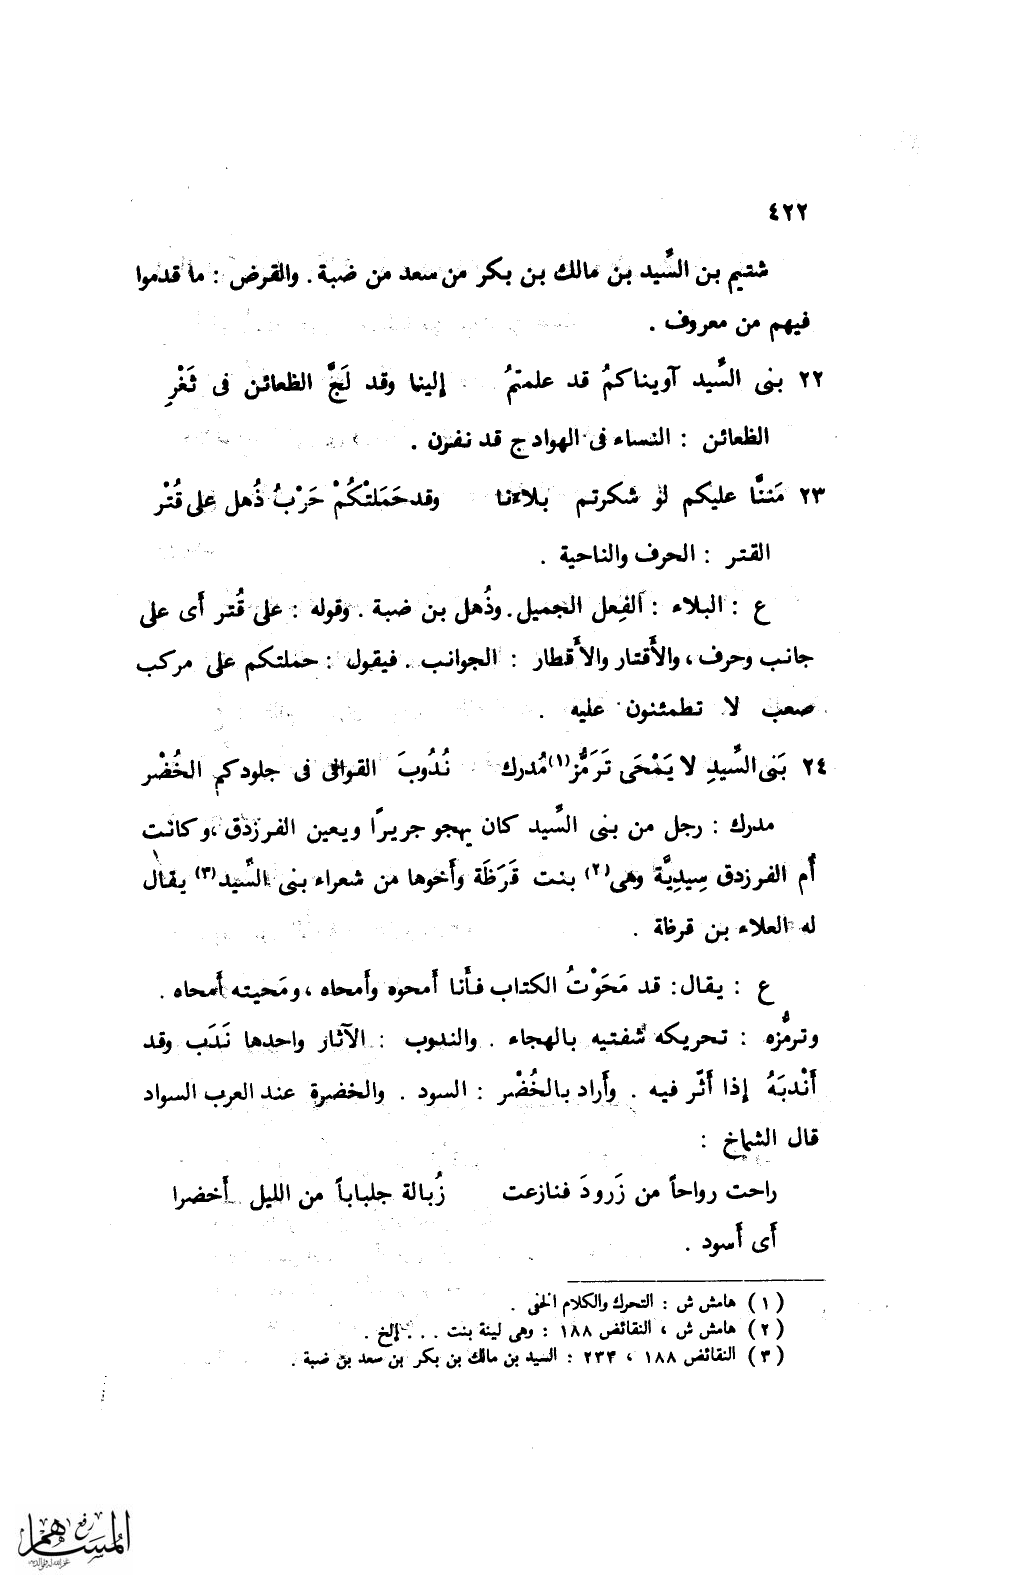 ٤٢٢
شتيم بن السِّيد بن مالك بن بكر من سعد من ضبة . والقرض : ما قدموا
فيهم من معروف .
٢٢ بنى السِّيد آويناكمُ قد علمتمُ إلينا وقد لَجَّ الظعائن فى ثَغْرِ
الظعائن : النساء فى الهوادج قد نفرن .
٢٣ مَننَّا عليكم لو شكرتم بلاءنا وقد حَمَلتْكُمْ حَرْبُ ذُهل على قُتْر
القتر : الحرف والناحية .
ع : البلاء : الفِعل الجميل . وذُهل بن ضبة . وقوله : على قُتر أَى على
جانب وحرف ، والأَقتار والأَقطار : الجوانب . فيقول : حملتكم على مركب
صعب لا تطمئنون عليه .
٢٤ بَنى السِّيدِ لا يَمْحَى تَرَمُّز(١) مُدرك نُدُوبَ القوافى فى جلودكم الخُضْر
مدرك : رجل من بنى السِّيد كان يهجو جريرًا ويعين الفرزدق ، وكانت
أُم الفرزدق سِيدِيَّة وهى(٢) بنت قَرَظَة وأَخوها من شعراء بنى السِّيد(٣) يقال
له العلاء بن قرظة .
ع : يقال : قد مَحَوْتُ الكتاب فأَنا أَمحوه وأَمحاه ، ومَحيته أَمحاه .
وترمُّزه : تحريكه شفتيه بالهجاء . والندوب : الآثار واحدها نَدَب وقد
أَنْدبَهُ إذا أَثّر فيه . وأَراد بالخُضْر : السود . والخضرة عند العرب السواد
قال الشماخ :
راحت رواحاً من زَرودَ فنازعت زُبالة جلباباً من الليل أَخضرا
أَى أَسود .
(١) هامش ش : التحرك والكلام الخفى .
(٢) هامش ش ، النقائض ١٨٨ : وهى لينة بنت . . . إلخ .
(٣) النقائض ١٨٨ ، ٢٣٣ : السيد بن مالك بن بكر بن سعد بن ضبة .